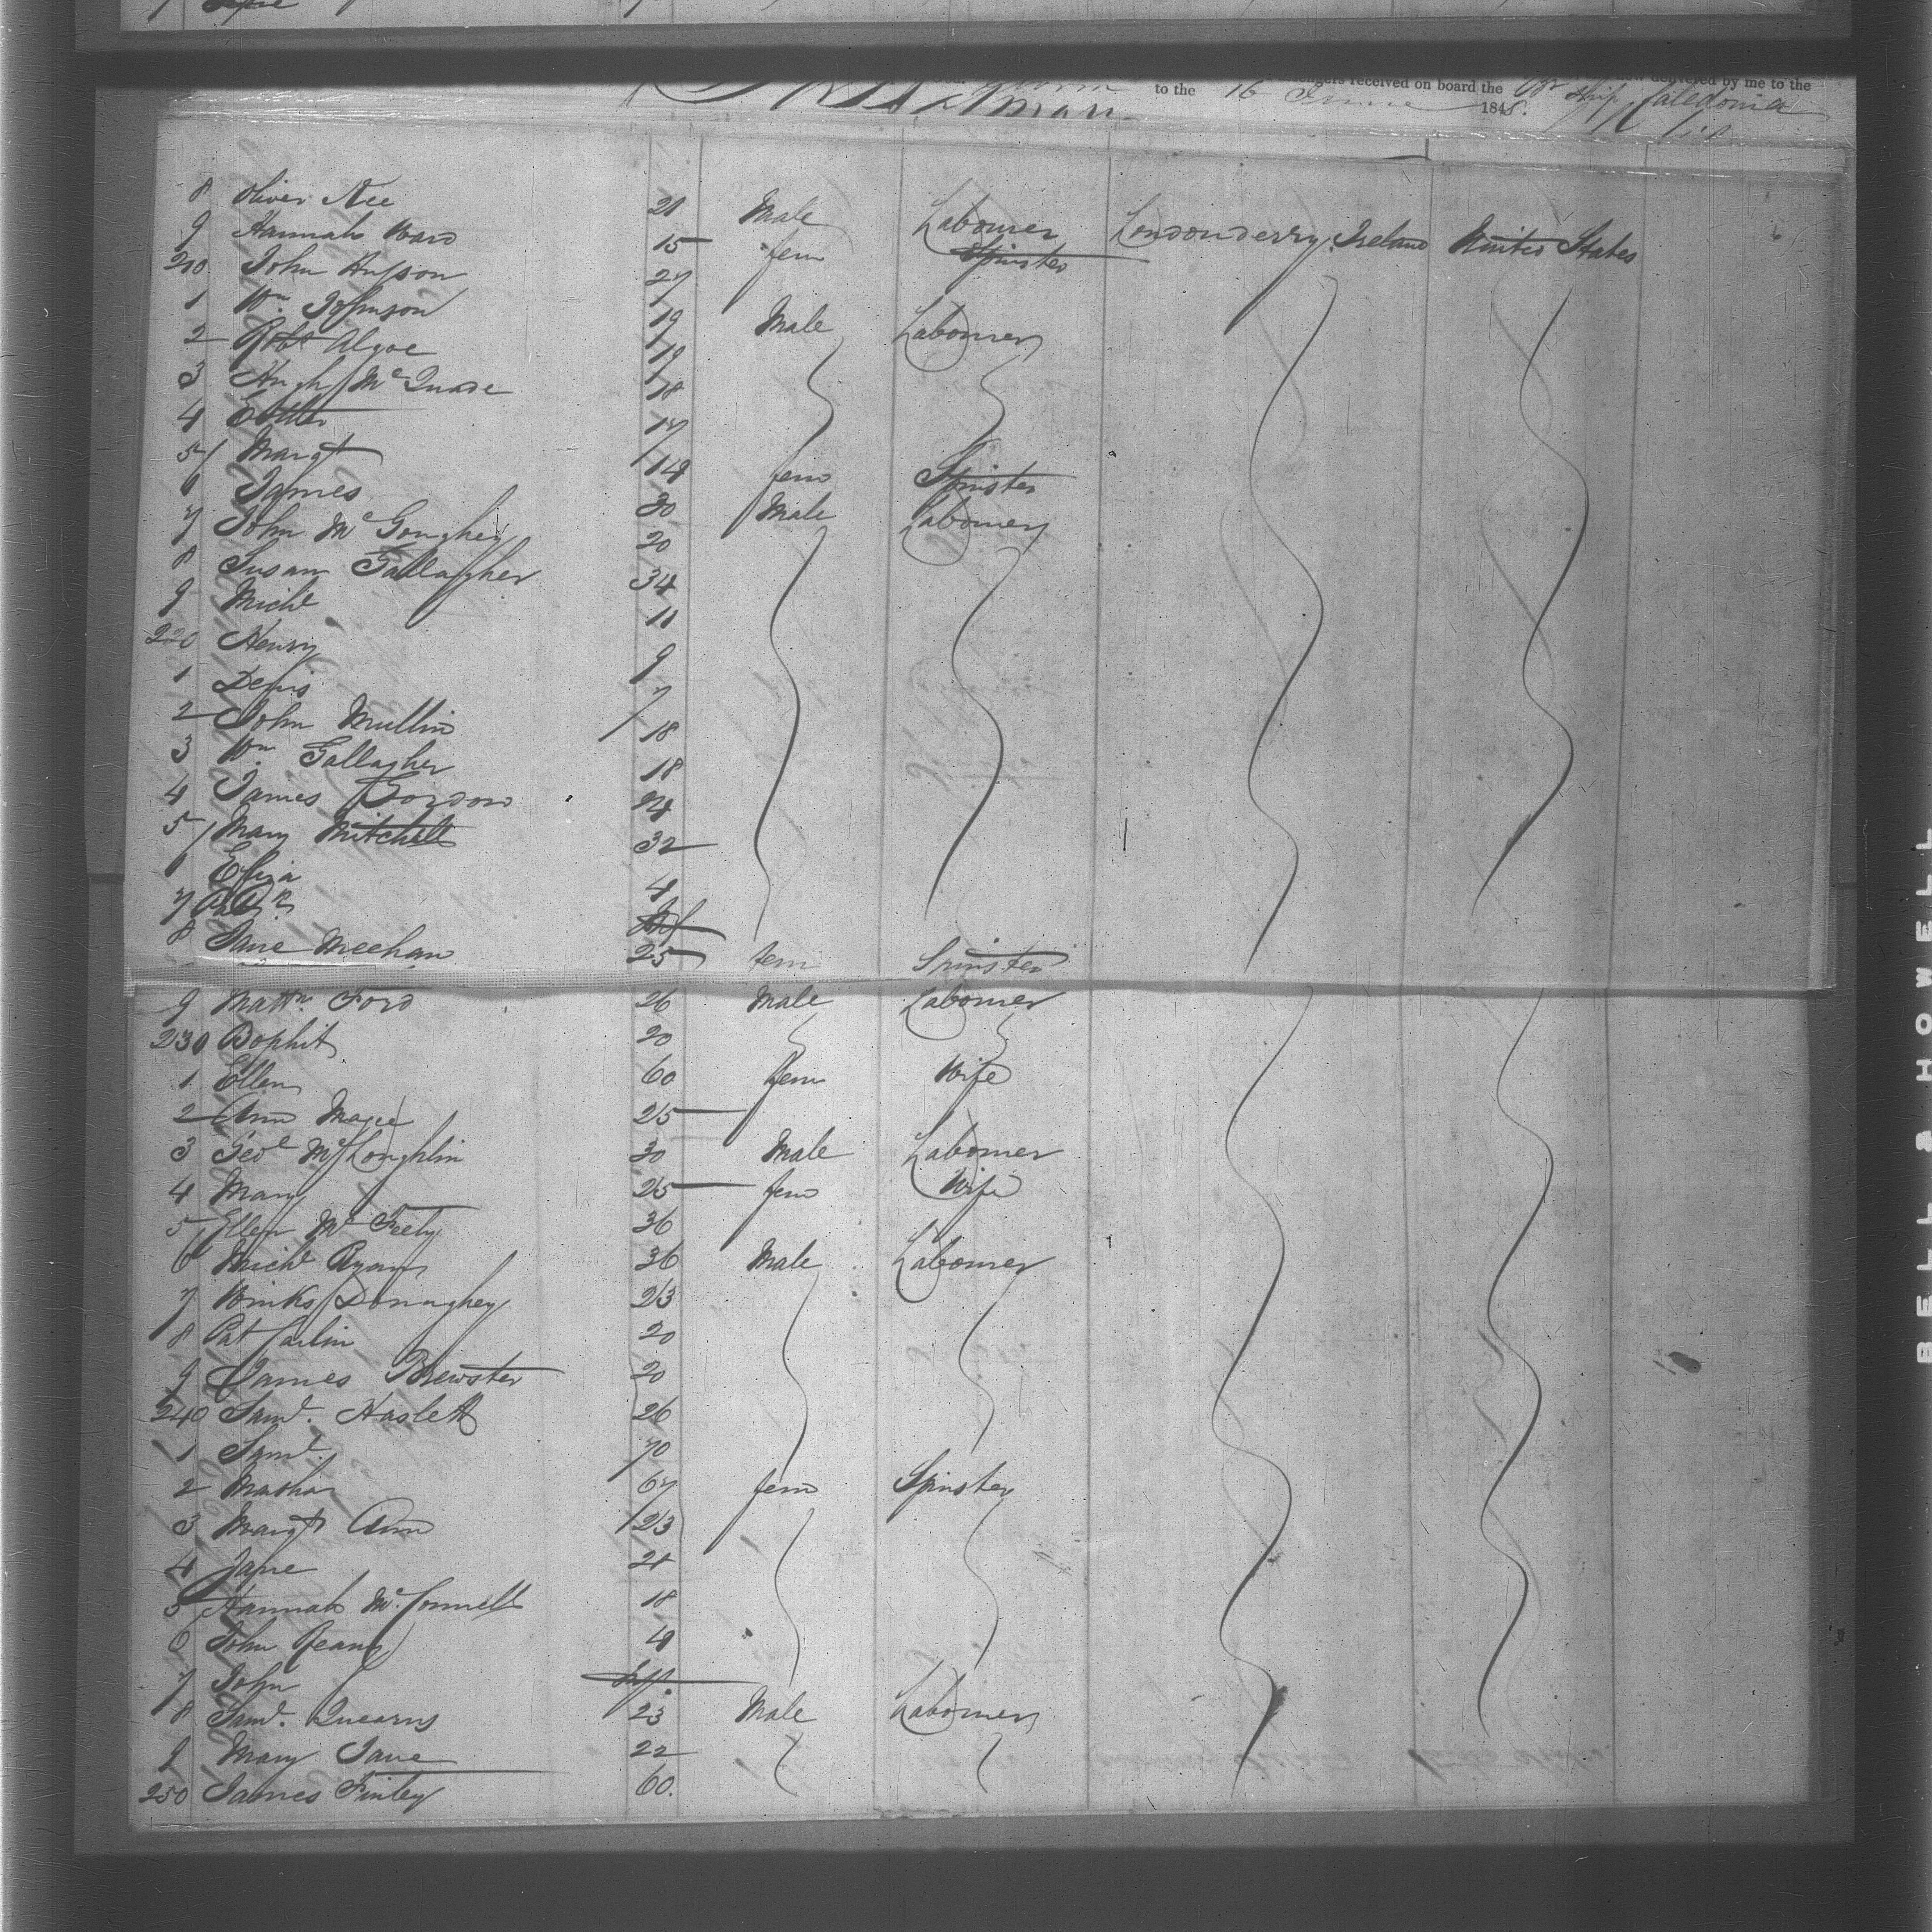 to the 16 June received on board the Br Ship Caledonia delivered by me to the
184
8 Oliver Nee 21 Male Labourer Londonderry Ireland United States
9 Hannah Ward 15 fem Spinster
210 John Hufson 27
1 Wm Johnson 19 Male Labourer
2 Robt Algoe 19
3 Hugh McQuade 18
4 17
5 Margt 14 fem Spinster
6 James 30 Male Labourer
7 John McGonghey 20
8 Susan Gallagher 34
9 Michl 11
220 Henry 9
1 Denis 7
2 John Mullin 18
3 Wm Gallagher 18
4 James Gordon 24
5 Mary Mitchell 32
6 Eliza 4
7 Inf
8 Jane Meehan 25 fem Spinster
9 Matthw. Ford 26 Male Labourer
230 Bophit 20
1 Ellen 60 fem Wife
2 Ann Magee 25
3 McLoughlin 30 Male Labourer
4 Mary 25 fem Wife
5 Ellen McFeely 36
6 Michl Ryan 36 Male Labourer
7 Donaghey 23
8 Pat Carlin 20
9 James Brewster 20
240 Saml. Haslett 26
1 Saml. 70
2 Martha 67 fem Spinster
3 Margt Ann 23
4 Jane 21
5 Hannah McConnell 18
6 John 4
7 John Inf.
8 Saml. Quearns 23 Male Labourer
9 Mary Jane 22
250 James Finley 60.
BELL & HOWELL